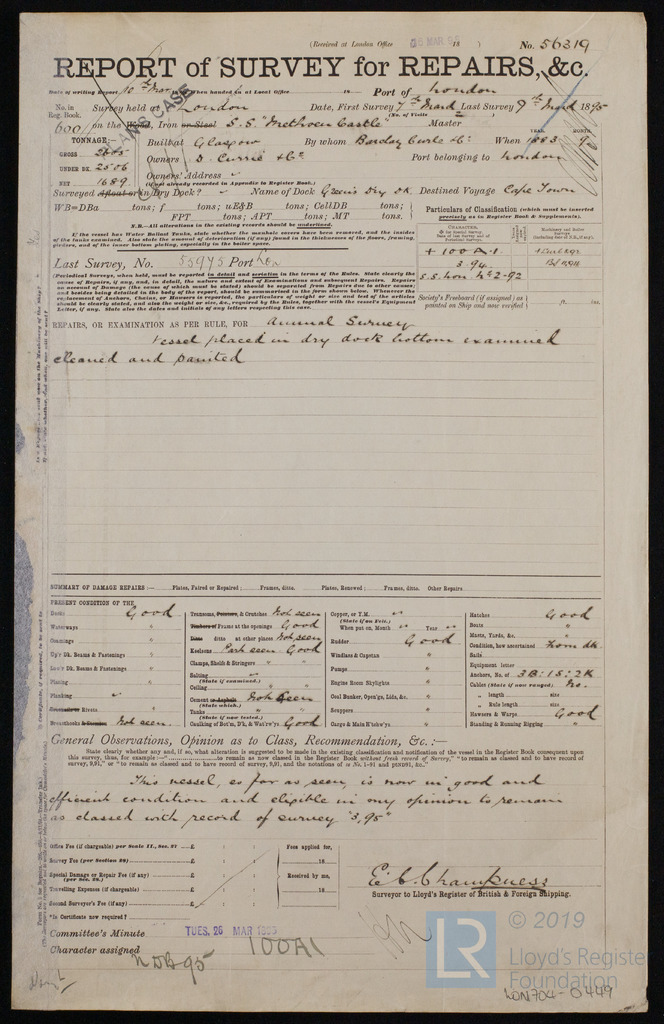 (Received at London Office 25 MAR 95 18 ) No. 56319
REPORT of SURVEY for REPAIRS, &c.
Date of writing Report 10th Mar When handed in at Local Office 18 Port of London
No. in Reg. Book. Survey held at London Date, First Survey 7th March Last Survey 9th March 1895
(No. of Visits )
600 on the Wood, Iron or Steel S.S. "Methven Castle" Master
TONNAGE: Built at Glasgow By whom Barclay Curle & Co When 1883 9
YEAR. MONTH.
GROSS Owners D. Currie & Co Port belonging to London
UNDER DK. 2506 Owners' Address
NET 1689 (if not already recorded in Appendix to Register Book.)
Surveyed Afloat or in Dry Dock? Name of Dock Green's Dry Dk. Destined Voyage Cape Town
WB=DBa tons; f tons; uE&B tons; CellDB tons;
FPT tons; APT tons; MT tons.
N.B.—All alterations in the existing records should be underlined.
Particulars of Classification (which must be inserted precisely as in Register Book & Supplements).
If the vessel has Water Ballast Tanks, state whether the manhole covers have been removed, and the insides
of the tanks examined. Also state the amount of deterioration (if any) found in the thickness of the floors, framing,
girders, and of the inner bottom plating, especially in the boiler space.
+ 100 A.1.
3.94
S.S. Lon. No 2-92
Last Survey, No. 55975 Port Lon
Periodical Surveys, when held, must be reported in detail and seriatim in the terms of the Rules. State clearly the
cause of Repairs, if any, and, in detail, the nature and extent of Examinations and subsequent Repairs. Repairs
on account of Damage (the cause of which must be stated) should be separated from Repairs due to other causes;
and besides being detailed in the body of the report, should be summarised in the form shewn below.
Society's Freeboard (if assigned) as painted on Ship and now verified ft. ins.
REPAIRS, OR EXAMINATION AS PER RULE, FOR Annual Survey
Vessel placed in dry dock bottom examined
cleaned and painted
SUMMARY OF DAMAGE REPAIRS:— Plates, Faired or Repaired; Frames, ditto. Plates, Renewed; Frames, ditto. Other Repairs
PRESENT CONDITION OF THE
Decks Good
Waterways "
Comings "
Up'r Dk. Beams & Fastenings "
Low'r Dk. Beams & Fastenings "
Plating "
Planking
Rivets "
Breasthooks Not seen.
Transoms, Pointers, & Crutches Not seen
Timbers or Frame at the openings Good
Ditto ditto at other places Not seen
Keelsons Part seen Good
Clamps, Shelfs & Stringers " "
Salting
(State if examined.)
Ceiling
Cement or Asphalt Not Seen
(State which.)
Tanks
(State if now tested.)
Caulking of Bot'm, D'k, & Wat'rw'ys Good
Copper, or Y.M.
(State if on Felt.)
When put on, Month Year
Rudder Good
Windlass & Capstan "
Pumps "
Engine Room Skylights "
Coal Bunker, Open'gs, Lids, &c. "
Scuppers "
Cargo & Main H'tchw'ys "
Hatches Good
Boats "
Masts, Yards, &c. "
Condition, how ascertained From dk
Sails
Equipment letter
Anchors, No. of 3B: 1S: 2K
Cables (State if now ranged) No.
" length size
" Rule length size
Hawsers & Warps Good
Standing & Running Rigging "
General Observations, Opinion as to Class, Recommendation, &c.:—
State clearly whether any, and if so, what alteration is suggested to be made in the existing classification and notification of the vessel in the Register Book consequent upon
this survey, thus, for example:—"to remain as now classed in the Register Book without fresh record of Survey," "to remain as classed and to have record of
This vessel, so far as seen, is now in good and
efficient condition and eligible in my opinion to remain
as classed with record of survey "3,95"
Office Fee (if chargeable) per Scale II., Sec. 27 £
Survey Fee (per Section 29) £
Special Damage or Repair Fee (if any) £
(per Sec. 28.)
Travelling Expenses (if chargeable) £
Second Surveyor's Fee (if any) £
Fees applied for,
18
Received by me,
18
E. C. Champness
Surveyor to Lloyd's Register of British & Foreign Shipping.
Is Certificate now required?
Committee's Minute TUES. 26 MAR 1895
Character assigned 100A1
LR
© 2019
Lloyd's Register
Foundation
LON704-0449